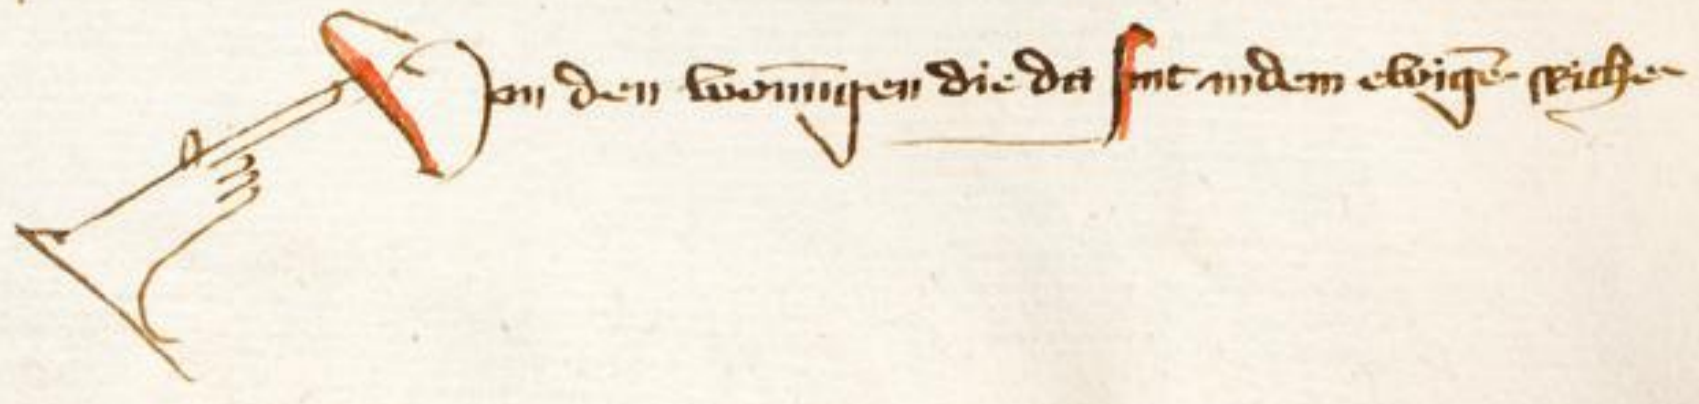 Von den wonūgen die da sint in dem ewigē riche